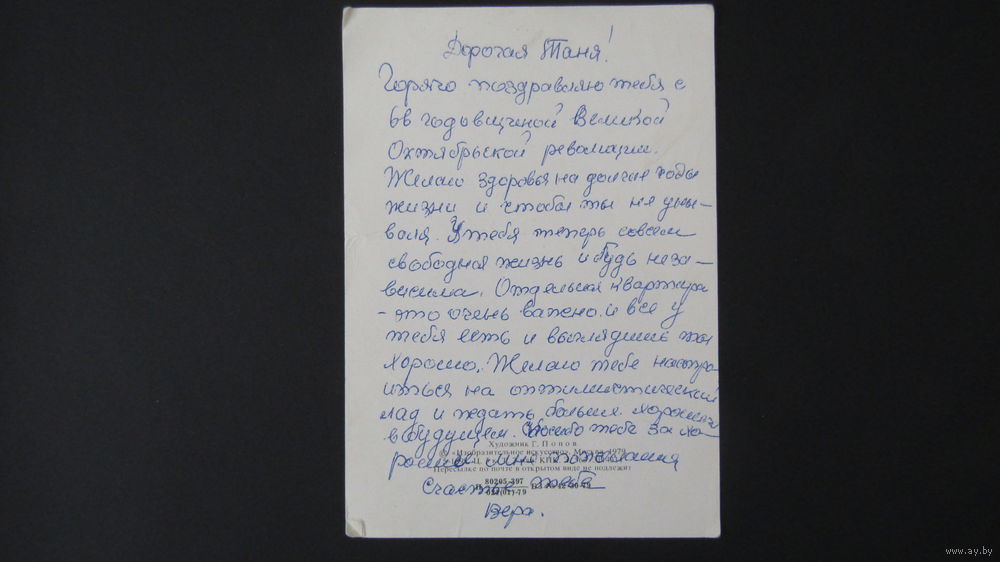 Дорогая Таня!
Горячо поздравляю тебя с
66 годовщиной Великой
Октябрьской революции.
Желаю здоровья на долгие годы
жизни и чтобы ты не уны-
вала. У тебя теперь совсем
свободная жизнь и будь неза-
висима. Отдельная квартира
- это очень важно и все у
тебя есть и выглядишь ты
хорошо. Желаю тебе настро-
иться на оптимистический
лад и ждать больше хорошего
в будущем. Спасибо тебе за хо-
Художник Г. Попов
© «Изобразительное искусство». Москва. 1979
рошие мне пожелания
Пересылке по почте в открытом виде не подлежит
Счастья тебе
80205-397
024(01)-79
Вера.
www.ay.by